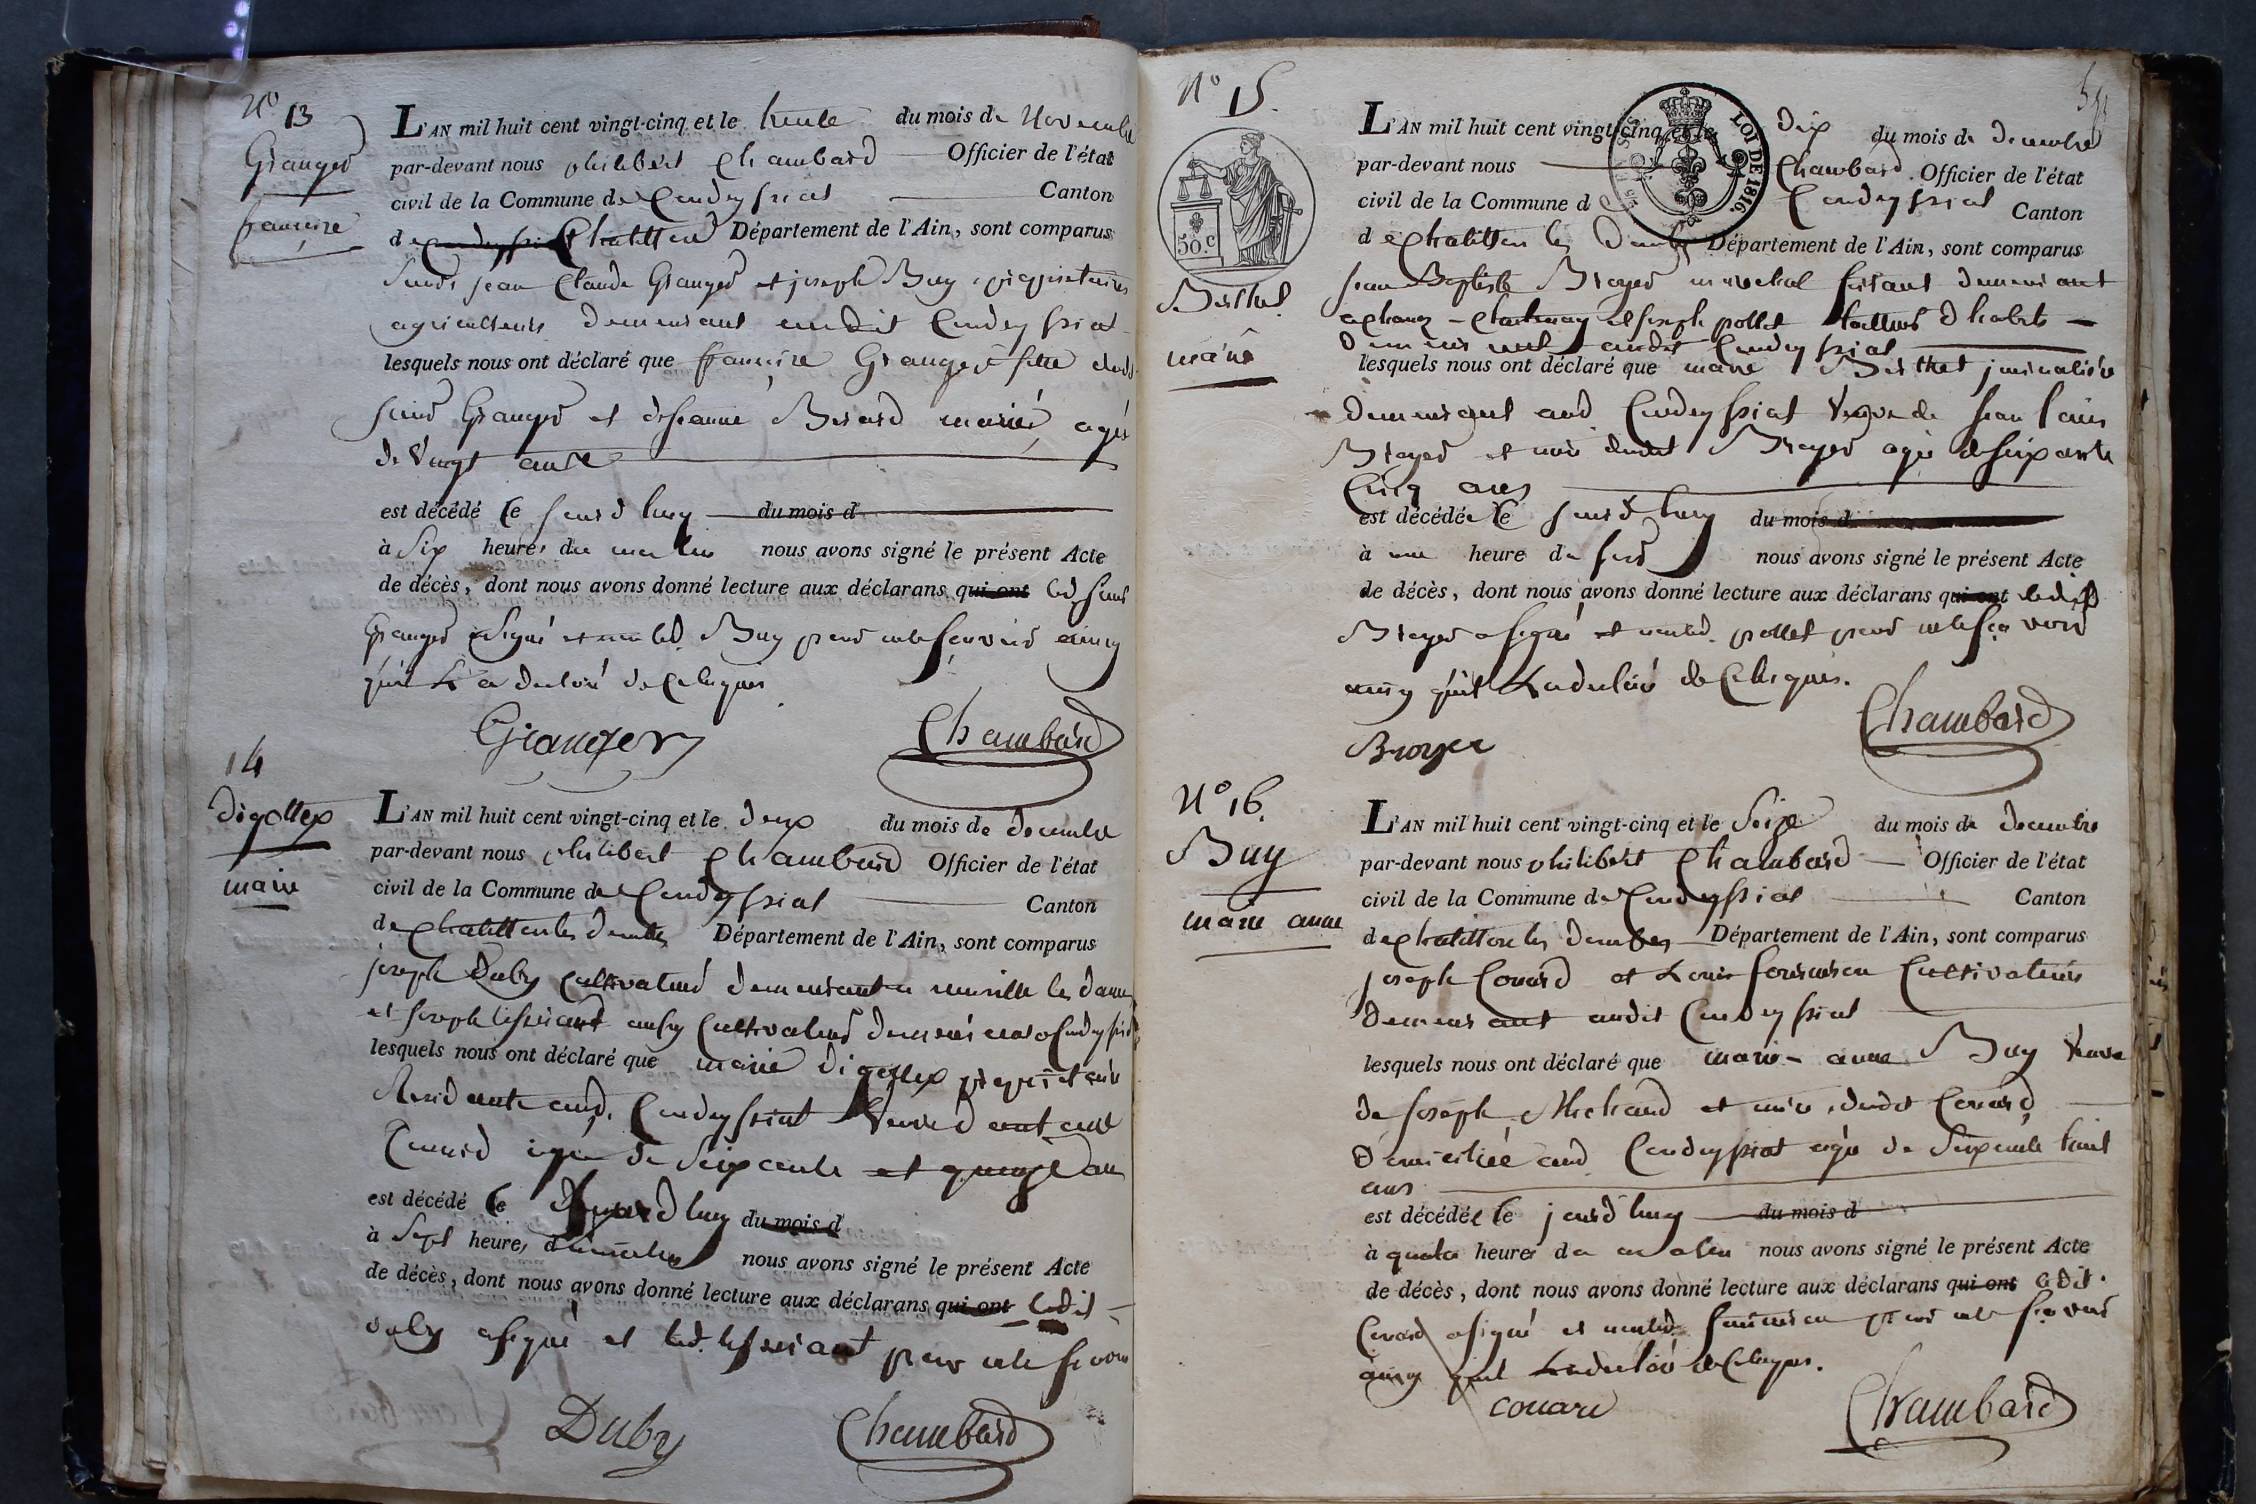 N° 13
Granger
françoise
L'AN mil huit cent vingt-cinq et le trente du mois de Novembre
par-devant nous philibert Chambard Officier de l'état
civil de la Commune de Condeyssiat Canton
de Condeyssiat Chatillon Département de l'Ain, sont comparus
Sieurs jean Claude Granger et joseph Buy propriétaires
agriculteurs demeurant audit Condeyssiat
lesquels nous ont déclaré que françoise Granger fille dud.
sieur Granger et de jeanne Berard mariés, agée
de vingt ans
est décédé le jourd huy du mois d
à Six heures du matin nous avons signé le présent Acte
de décès, dont nous avons donné lecture aux déclarans qui ont led. sieur
Granger a signé et non led. Buy pour ne le scavoir ainsy
qu'il l'a declaré de ce requis
Granger Chambard
14
digollex
marie
L'AN mil huit cent vingt-cinq et le deux du mois de decembre
par-devant nous philibert Chambard Officier de l'état
civil de la Commune de Condeyssiat Canton
de Chatillon les dombes Département de l'Ain, sont comparus
joseph Duby cultivateur demeurant a neuville les dames
et joseph aussy cultivateur demeurant a Condeyssiat
lesquels nous ont déclaré que marie digollex propriétaire
Residente aud. Condeyssiat Veuve d antoine
Couard agée de Soixante et quinze ans
est décédé le jourd huy du mois d
à Sept heures du matin nous avons signé le présent Acte
de décès, dont nous avons donné lecture aux déclarans qui ont ledit
duby a signé et non led. pour ne le scavoir
Duby Chambard
N° 15.
50.c
LOI DE 1816.
Berthet
marie
L'AN mil huit cent vingt-cinq et le dix du mois de decembre
par-devant nous Chambard Officier de l'état
civil de la Commune d Condeyssiat Canton
de Chatillon les Dombes Département de l'Ain, sont comparus
jean Baptiste Broyer marechal ferrant demeurant
a chanoz - chatenay et joseph pollet tailleur d habits
demeurant audit Condeyssiat
lesquels nous ont déclaré que marie Berthet journalière
demeurant aud. Condeyssiat veuve de jean louis
Broyer et mère dudit Broyer agée de soixante
Cinq ans
est décédée le jourd huy du mois d
à une heure du soir nous avons signé le présent Acte
de décès, dont nous avons donné lecture aux déclarans qui ont ledit
Broyer a signé et non led. pollet pour ne le scavoir
ainsy qu'il l'a declaré de ce requis.
Broyer Chambard
N° 16.
Buy
marie anne
L'AN mil huit cent vingt-cinq et le Seize du mois de decembre
par-devant nous philibert Chambard Officier de l'état
civil de la Commune de Condeyssiat Canton
de chatillon les dombes Département de l'Ain, sont comparus
joseph Couard et Louis Cultivateurs
demeurant audit Condeyssiat
lesquels nous ont déclaré que marie - anne Buy veuve
de joseph Michaud et mère dudit Couard
domiciliée aud. Condeyssiat agée de Soixante huit
ans
est décédée le jourd huy du mois d
à quatre heures du matin nous avons signé le présent Acte
de décès, dont nous avons donné lecture aux déclarans qui ont ledit
Couard a signé et non led. pour ne le scavoir
ainsy qu'il l'a declaré de ce requis.
couard Chambard